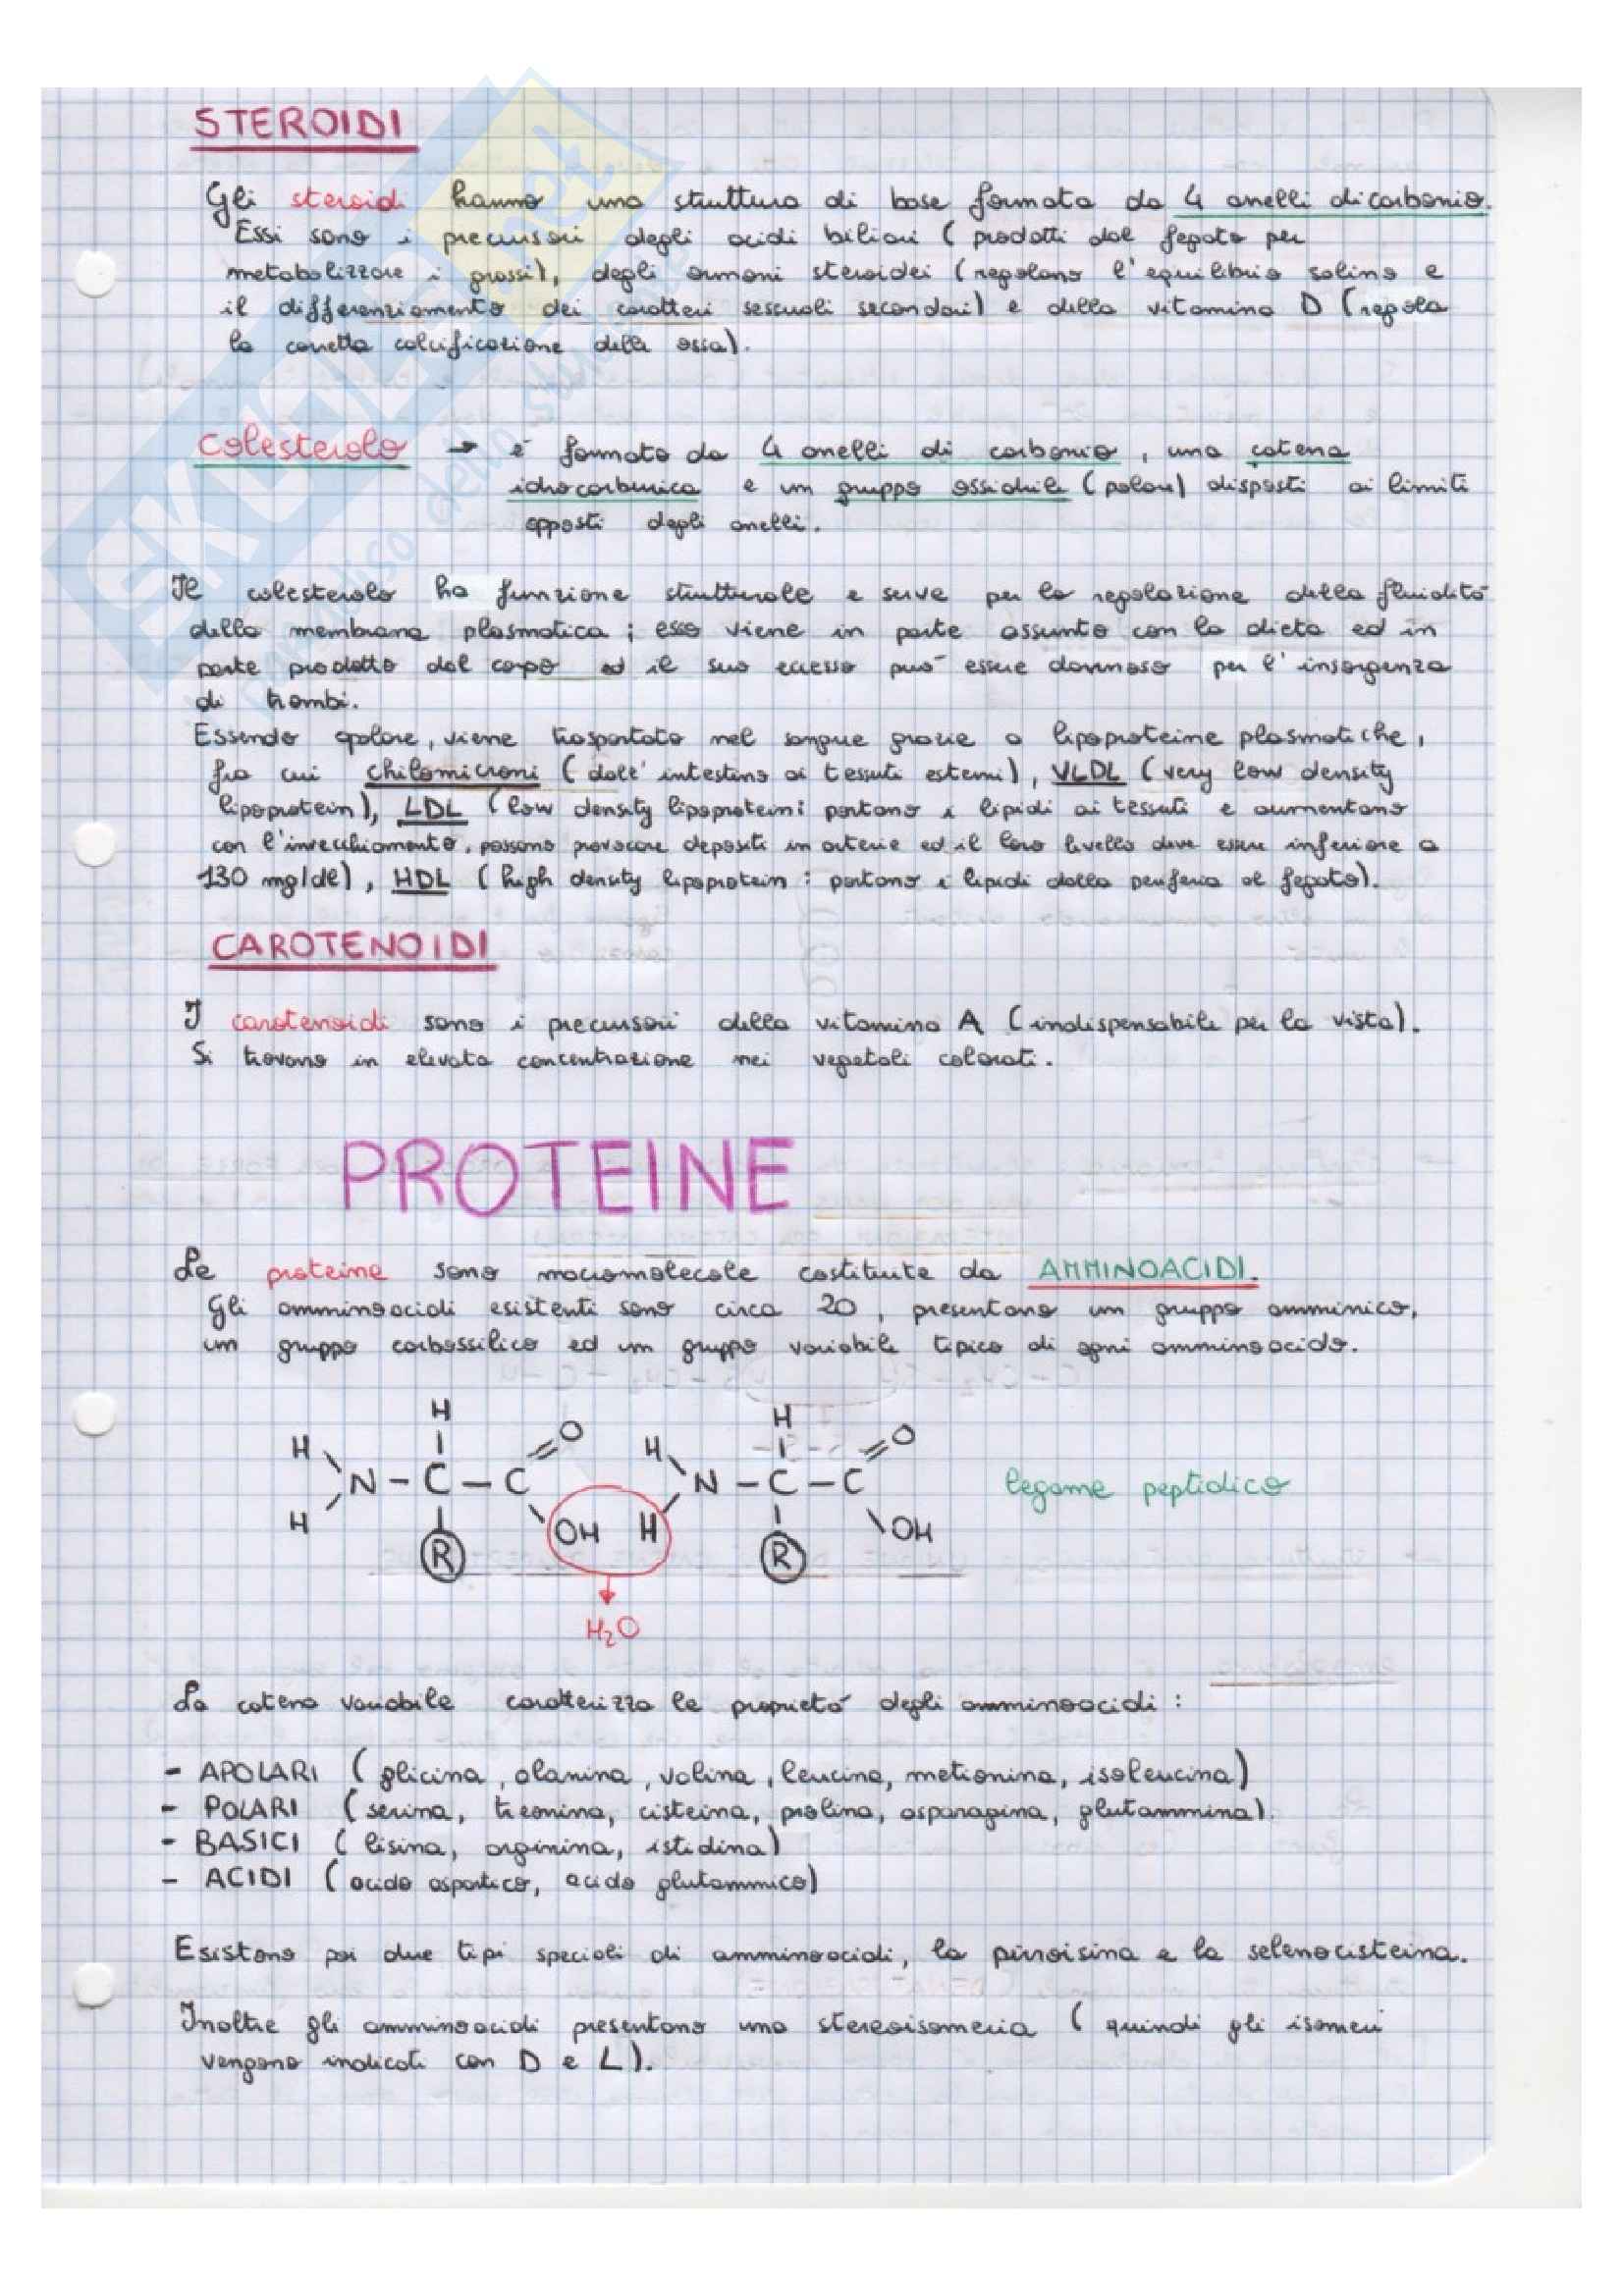 STEROIDI
Gli steroidi hanno una struttura di base formata da 4 anelli di carbonio.
Essi sono i precursori degli acidi biliari (prodotti dal fegato per
metabolizzare i grassi), degli ormoni steroidei (regolano l'equilibrio salino e
il differenziamento dei caratteri sessuali secondari) e della vitamina D (regola
la corretta calcificazione delle ossa).
Colesterolo → è formato da 4 anelli di carbonio, una catena
idrocarburica e un gruppo ossidrile (polare) disposti ai limiti
opposti degli anelli.
Il colesterolo ha funzione strutturale e serve per la regolazione della fluidità
della membrana plasmatica; esso viene in parte assunto con la dieta ed in
parte prodotto dal corpo ed il suo eccesso può essere dannoso per l'insorgenza
di trombi.
Essendo apolare, viene trasportato nel sangue grazie a lipoproteine plasmatiche,
fra cui chilomicroni (dall'intestino ai tessuti esterni), VLDL (very low density
lipoprotein), LDL (low density lipoprotein: portano i lipidi ai tessuti e aumentano
con l'invecchiamento, possono provocare depositi in arterie ed il loro livello deve essere inferiore a
130 mg/dl), HDL (high density lipoprotein: portano i lipidi dalla periferia al fegato).
CAROTENOIDI
I carotenoidi sono i precursori della vitamina A (indispensabile per la vista).
Si trovano in elevata concentrazione nei vegetali colorati.
PROTEINE
Le proteine sono macromolecole costituite da AMMINOACIDI.
Gli amminoacidi esistenti sono circa 20, presentano un gruppo amminico,
un gruppo carbossilico ed un gruppo variabile tipico di ogni amminoacido.
H H
H O H O
N - C - C N - C - C legame peptidico
H OH H OH
R R
H₂O
La catena variabile caratterizza le proprietà degli amminoacidi:
- APOLARI (glicina, alanina, valina, leucina, metionina, isoleucina)
- POLARI (serina, treonina, cisteina, prolina, asparagina, glutammina).
- BASICI (lisina, arginina, istidina)
- ACIDI (acido aspartico, acido glutammico)
Esistono poi due tipi speciali di amminoacidi, la pirroisina e la selenocisteina.
Inoltre gli amminoacidi presentano una stereoisomeria (quindi gli isomeri
vengono indicati con D e L).